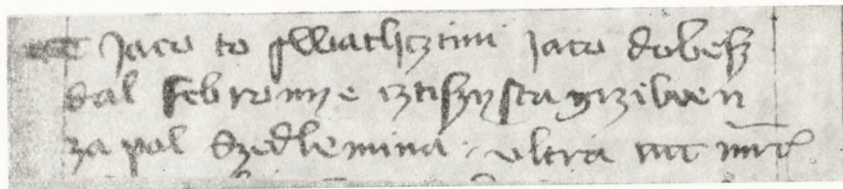 Jaco to swathczimi jaco dobesz
dal Febronye cztirzysta grziwen
za pol Dzedlemina ultra